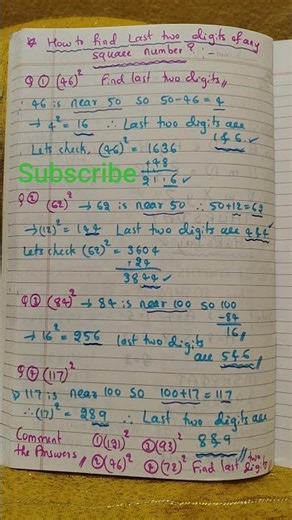 * How to find Last two digits of any
square number? :-
Q ① (46)² Find last two digits //
46 is near 50 so 50-46=4
→ 4²=16 ∴ Last two digits are
1 & 6. ✓
Lets check, (46)² = 1636
+48
2116 ✓
Subscribe
Q ② (62)² → 62 is near 50 ∴ 50+12=62
→ (12)² = 144 Last two digits are 4 & 4 ✓
Lets check (62)² = 3604
+24
3844 ✓
Q ③ (84)² → 84 is near 100 so 100
-84
16 //
→ 16² = 256 last two digits
are 5 & 6 //
Q ④ (117)²
117 is near 100 so 100+17=117
∴ (17)² = 289 ∴ Last two digits are
8 & 9 //
Comment ① (121)² ③ (93)²
the Answers // ② (96)² ④ (72)² Find last two digits